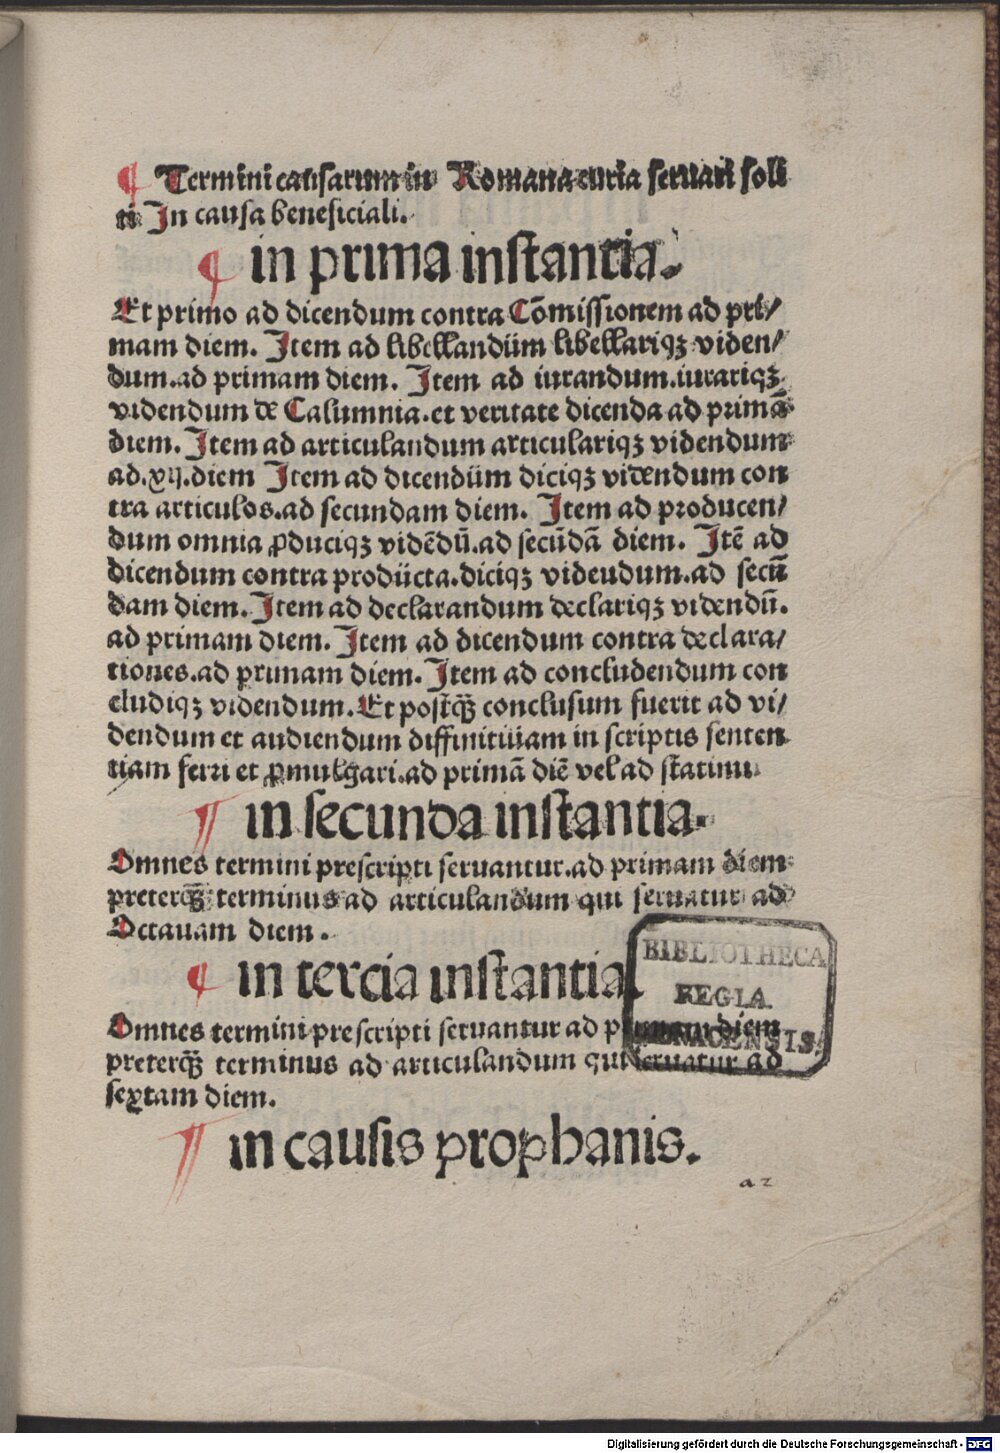 ¶ Termini causarum in Romana curia seruari soli
ti In causa beneficiali.
¶ in prima instantia.
Et primo ad dicendum contra Cōmissionem ad pri/
mam diem. Item ad libellandum libellariqꝫ viden/
dum.ad primam diem. Item ad iurandum.iurariqꝫ
videndum de Calumnia.et veritate dicenda ad primā
diem. Item ad articulandum articulariqꝫ videndum
ad.xij.diem Item ad dicendum diciqꝫ videndum con
tra articulos.ad secundam diem. Item ad producen/
dum omnia ꝓduciqꝫ vidēdū.ad secūdā diem. Itē ad
dicendum contra producta.diciqꝫ videudum.ad secū
dam diem. Item ad declarandum declariqꝫ videndū.
ad primam diem. Item ad dicendum contra declara/
tiones.ad primam diem. Item ad concludendum con
cludiqꝫ videndum. Et postqꝫ̄ conclusum fuerit ad vi/
dendum et audiendum diffinitiuam in scriptis senten
tiam ferri et ꝓmulgari.ad primā diē vel ad statim
¶ in secunda instantia.
Omnes termini prescripti seruantur.ad primam diem
preterqꝫ̄ terminus ad articulandum qui seruatur ad
Octauam diem.
¶ in tercia instantia.
Omnes termini prescripti seruantur ad primam diem
preterqꝫ̄ terminus ad articulandum qui seruatur ad
sextam diem.
¶ in causis prophanis.
a 2
BIBLIOTHECA
REGIA
MONACENSIS.
Digitalisierung gefördert durch die Deutsche Forschungsgemeinschaft - DFG